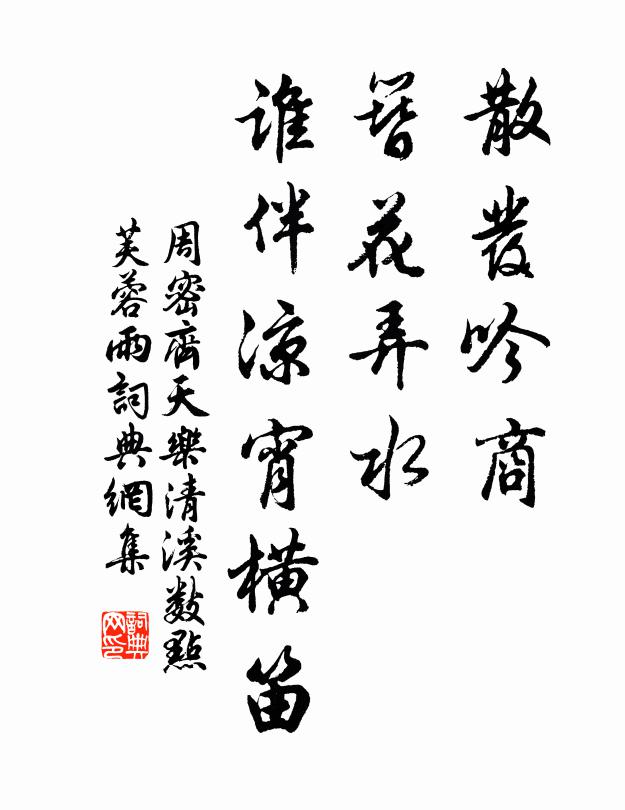 散發吟商
簪花弄水
誰伴涼宵橫笛
周密齊天樂清溪數點
芙蓉雨詞典網集
詞典网印